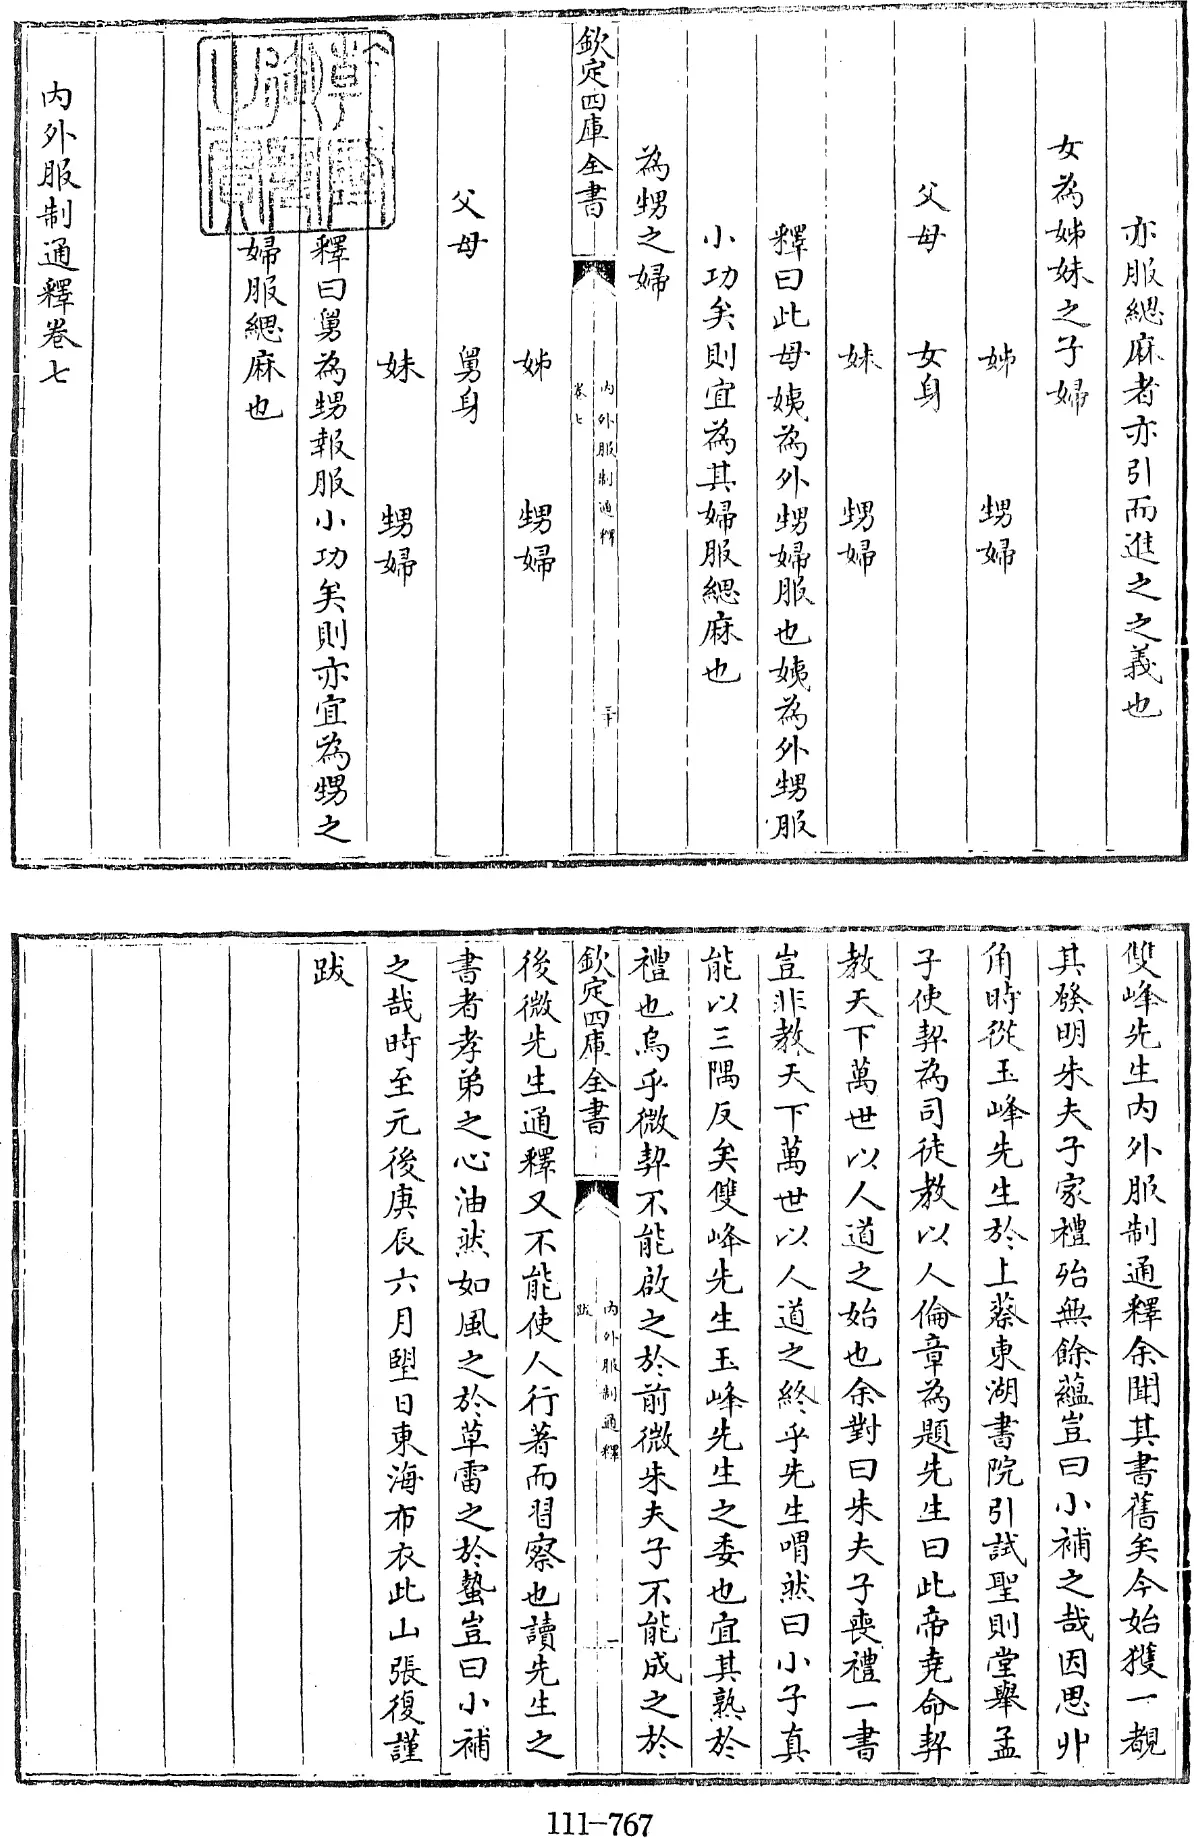 亦服緦麻者亦引而進之之義也
女為姊妹之子婦
姊　甥婦
父母　女身
妹　甥婦
釋曰此母姨為外甥婦服也姨為外甥服
小功矣則宜為其婦服緦麻也
為甥之婦
欽定四庫全書
內外服制通釋
卷七
三十
姊　甥婦
父母　舅身
妹　甥婦
釋曰舅為甥報服小功矣則亦宜為甥之
婦服緦麻也
內外服制通釋卷七
雙峰先生內外服制通釋余聞其書舊矣今始獲一覩
其發明朱夫子家禮殆無餘蘊豈曰小補之哉因思丱
角時從玉峰先生於上蔡東湖書院引試聖則堂舉孟
子使契為司徒教以人倫章為題先生曰此帝堯命契
教天下萬世以人道之始也余對曰朱夫子喪禮一書
豈非教天下萬世以人道之終乎先生喟然曰小子真
能以三隅反矣雙峰先生玉峰先生之委也宜其熟於
禮也烏乎微契不能啟之於前微朱夫子不能成之於
欽定四庫全書
內外服制通釋
跋
一
後微先生通釋又不能使人行著而習察也讀先生之
書者孝弟之心油然如風之於草雷之於蟄豈曰小補
之哉時至元後庚辰六月朢日東海布衣此山張復謹
跋
111-767